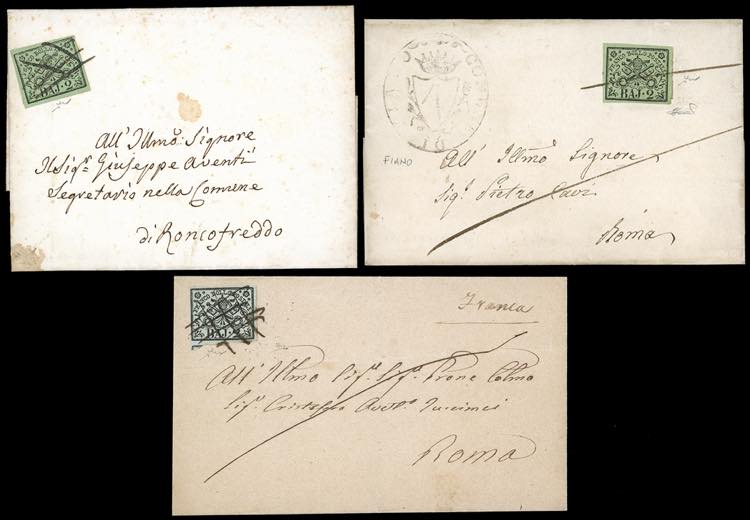 BAJ. 2
All' Illmo Signore
Il Sigr Giuseppe Aventi
Segretario nella Comune
di Roncofreddo
BAJ. 2
FIANO
All' Illmo Signore
Sigr Pietro Cavi
Roma
BAJ. 2
Franca
All' Illmo Sigr Sigr Prone Colmo
Sigr Cristoforo
Roma